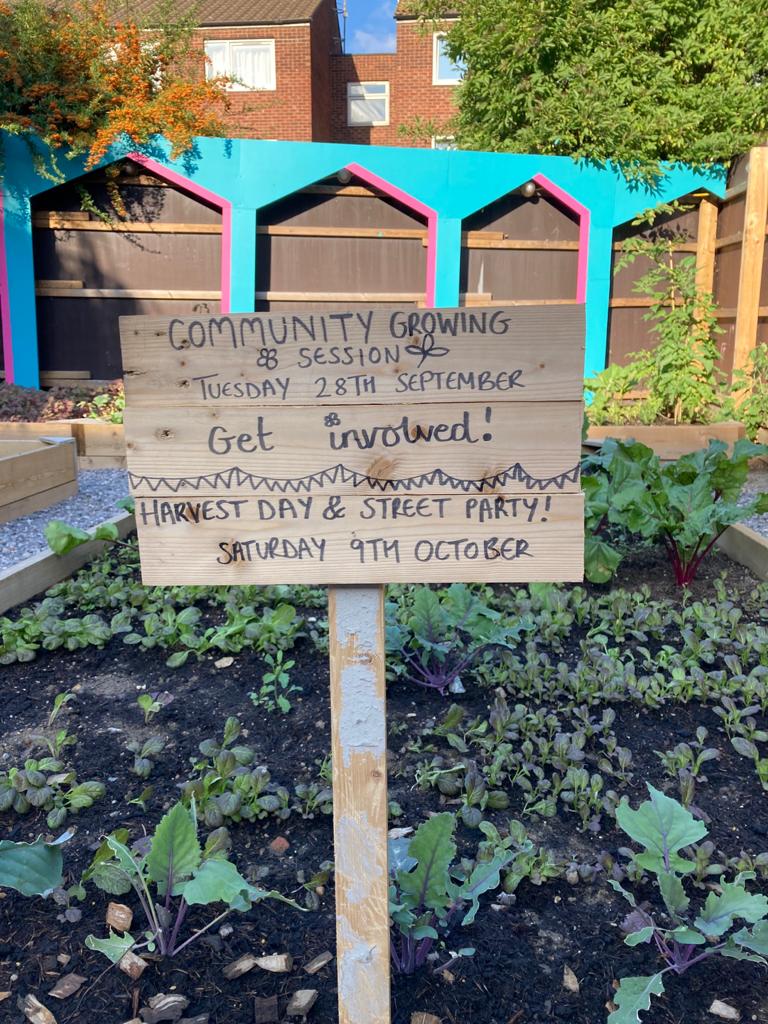 COMMUNITY GROWING
SESSION
TUESDAY 28TH SEPTEMBER
Get involved!
HARVEST DAY & STREET PARTY!
SATURDAY 9TH OCTOBER